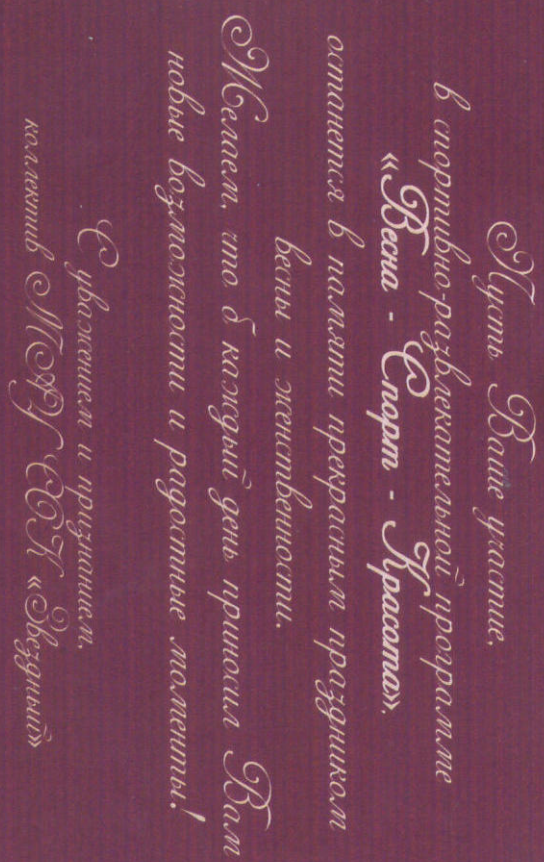 Пусть Ваше участие,
в спортивно-развлекательной программе
«Весна - Спорт - Красота»,
останется в памяти прекрасным праздником
весны и женственности.
Желаем, что б каждый день приносил Вам
новые возможности и радостные моменты!
С уважением и признанием,
коллектив МАУ СОК «Звездный»